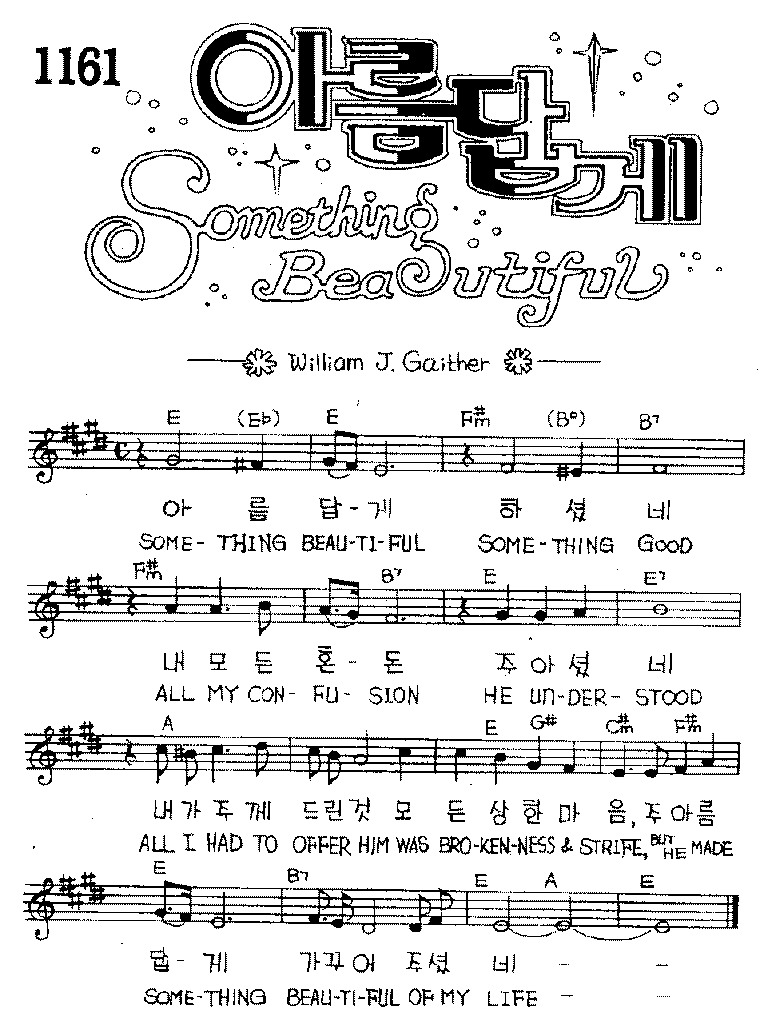 1161
아름답게
Something
Beautiful
William J. Gaither
E (E♭) E F#m (B°) B7
아 름 답 - 게 하 셨 네
SOME- THING BEAU-TI-FUL SOME-THING GOOD
F#m B7 E E7
내 모 든 혼 - 돈 주 아 셨 네
ALL MY CON- FU- SION HE UN-DER- STOOD
A E G# C#m F#m
내가 주께 드린것 모 든 상 한 마 음, 주 아름
ALL I HAD TO OFFER HIM WAS BRO-KEN-NESS & STRIFE, BUT HE MADE
E B7 E A E
답 - 게 가꾸어 주셨 네 - -
SOME-THING BEAU-TI-FUL OF MY LIFE - -